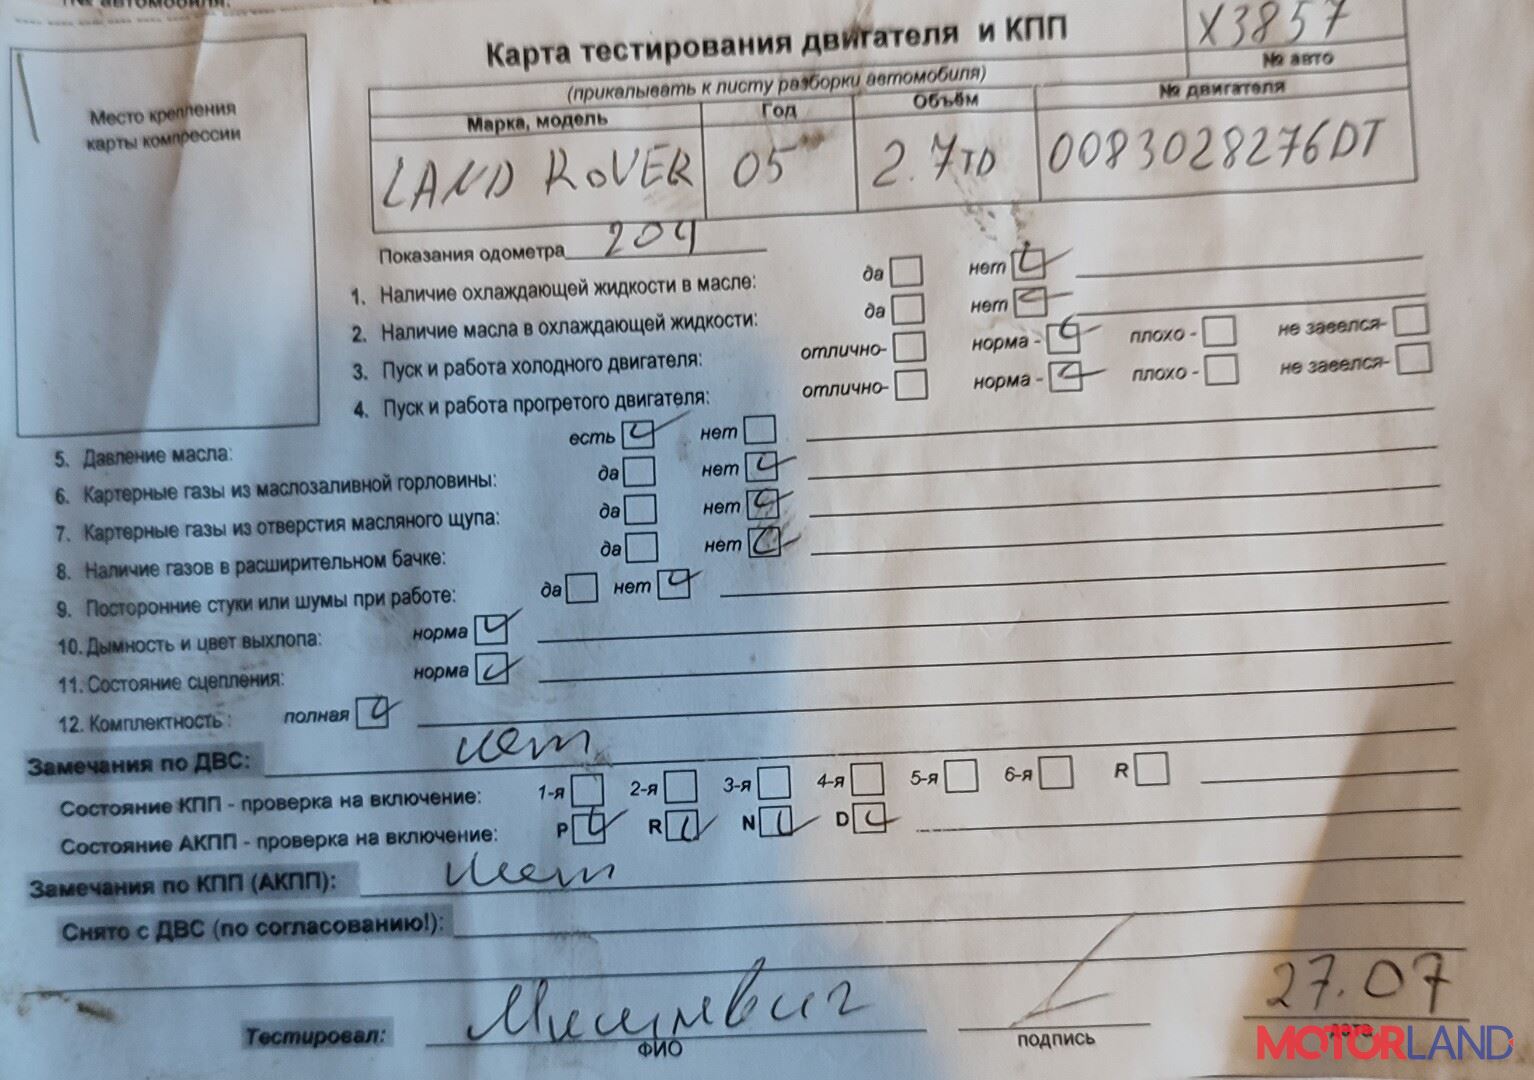 Карта тестирования двигателя и КПП
X3857
№ авто
(прикалывать к листу разборки автомобиля)
Место крепления
карты компрессии
Марка, модель Год Объём № двигателя
LAND ROVER 05 2.7TD 0083028276DT
Показания одометра 204
1. Наличие охлаждающей жидкости в масле: да нет
2. Наличие масла в охлаждающей жидкости: да нет
3. Пуск и работа холодного двигателя: отлично- норма - плохо - не завелся-
4. Пуск и работа прогретого двигателя: отлично- норма - плохо - не завелся-
5. Давление масла: есть нет
6. Картерные газы из маслозаливной горловины: да нет
7. Картерные газы из отверстия масляного щупа: да нет
8. Наличие газов в расширительном бачке: да нет
9. Посторонние стуки или шумы при работе: да нет
10. Дымность и цвет выхлопа: норма
11. Состояние сцепления: норма
12. Комплектность : полная
Замечания по ДВС: нет
Состояние КПП - проверка на включение: 1-я 2-я 3-я 4-я 5-я 6-я R
Состояние АКПП - проверка на включение: P R N D
Замечания по КПП (АКПП): нет
Снято с ДВС (по согласованию!):
Тестировал:
27.07
ФИО подпись
MOTORLAND